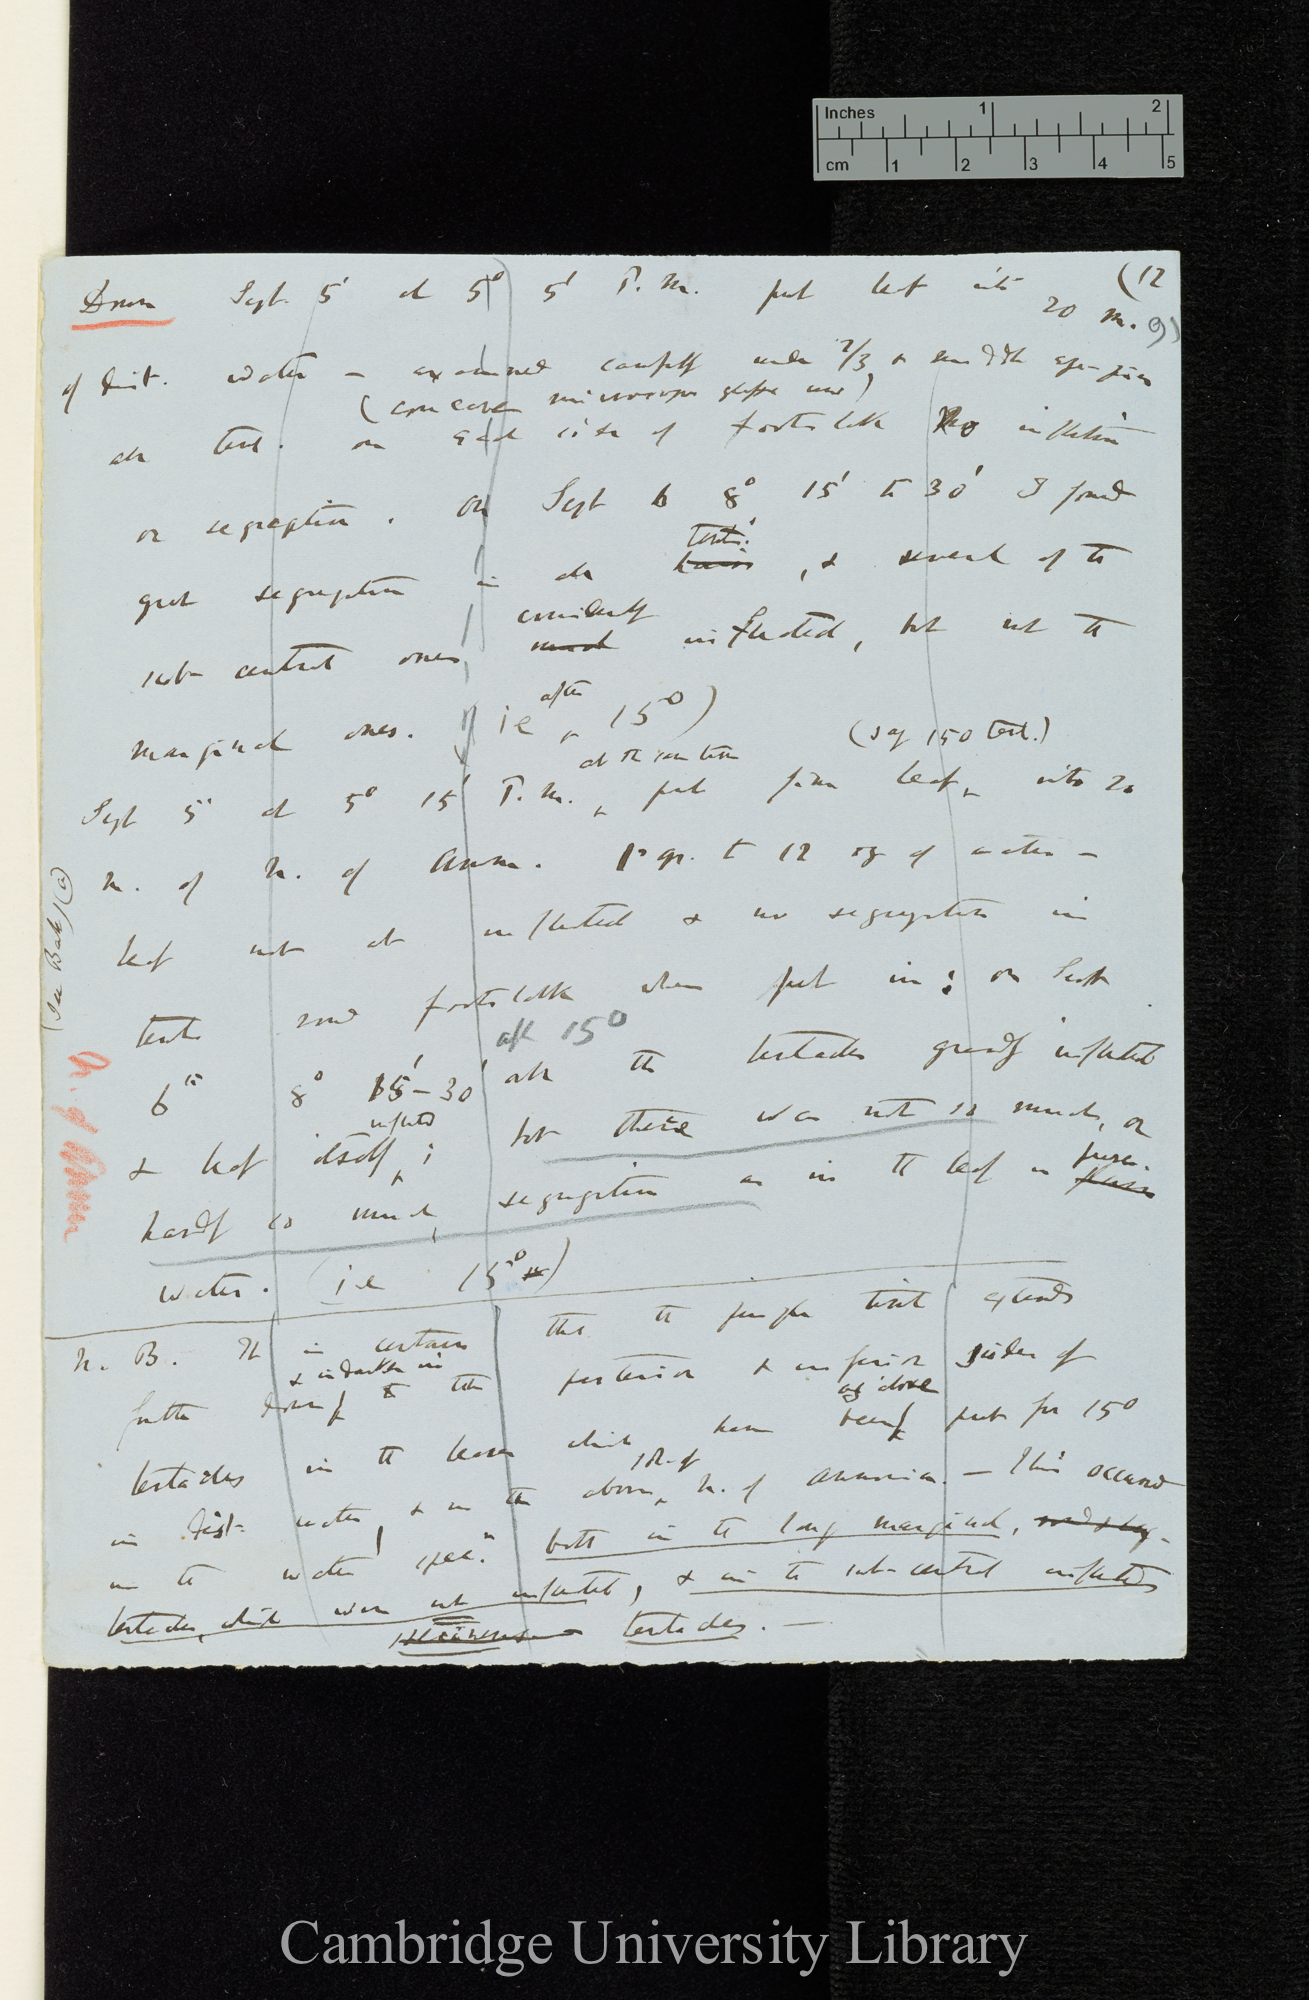 Inches 1 2
cm 1 2 3 4 5
(12
Dros Sept. 5' at 5° 5' P.M. put leaf into 20 m. 9)
of dist. water — examined carefully under 2/3 &
(concave microscope glass used)
all tent. on each side of footstalk No inflection
or segregation. On Sept 6 8° 15' to 30' I found
great segregation in all hairs tent:, & several of the
sub-central ones much considerably inflected, but not the
marginal ones. (ie after 15°)
(say 150 tent.)
Sept 5' at 5° 15' P.M. at the same time put fine leaf, into 20
m. of N. of Amm. 1 gr. to 12 oz of water —
leaf not at inflected & no segregation in
tents round footstalk when put in; on Sept
after 15°
6th 8° 15'–30' all the tentacles greatly inflected
& leaf itself inflected; but there was not so much, or
hardly so much, segregation as in the leaf in pure
water. (ie 15°)
(See Back) (a)
N. of Amm
N. B. It is certain that the purple tint extends
further down & is darker in to the posterior & inferior sides of
tentacles in the leaves which have been as above put for 15°
in dist: water, & in the above N. of Ammonia. — This occurred
in the water spec.n both in the long marginal,
tentacles, which were not inflected, & in the sub-central inflected
tentacles. —
Cambridge University Library